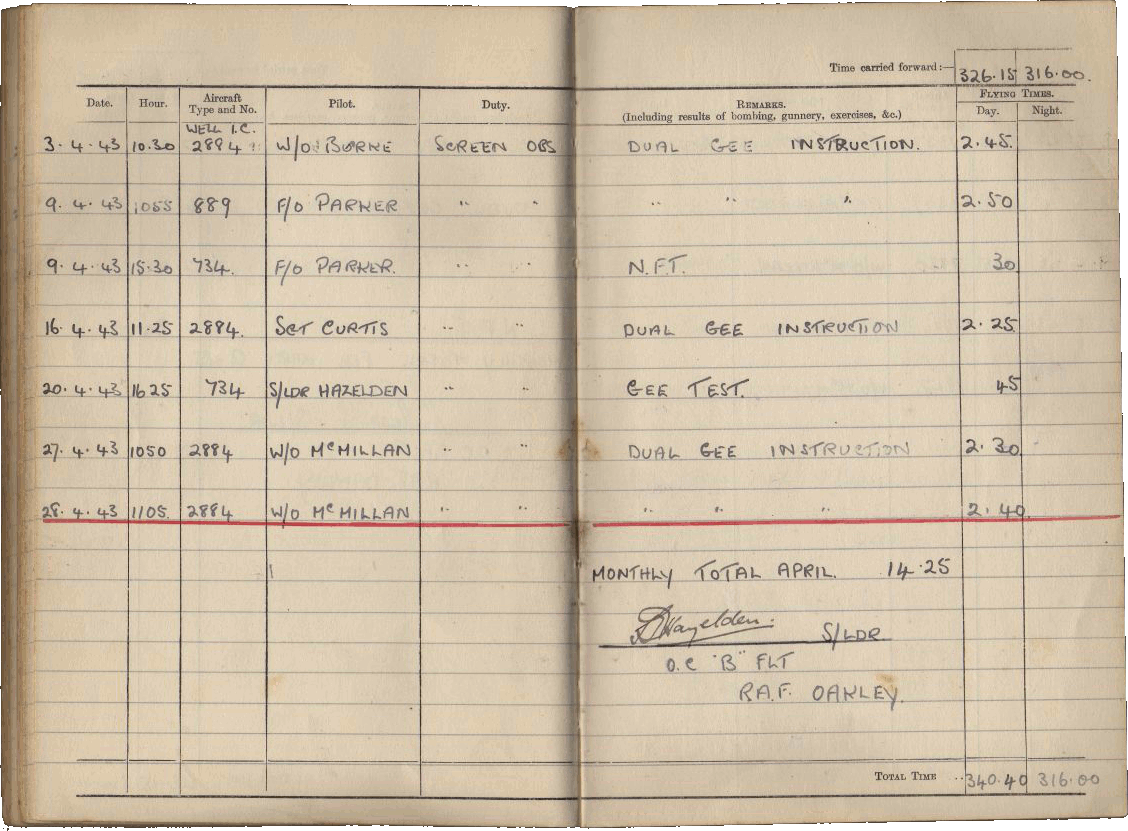 Time carried forward:— 326.15 316.00.
Date. Hour. Aircraft Type and No. Pilot. Duty. REMARKS. (Including results of bombing, gunnery, exercises, &c.) FLYING TIMES. Day. Night.
WELL I.C.
3.4.43 10.30 2884 W/O BOURKE SCREEN OBS DUAL GEE INSTRUCTION. 2.45.
9.4.43 1055 889 F/O PARKER " " " " " 2.50
9.4.43 15.30 734. F/O PARKER. " " N.F.T. 30
16.4.43 11.25 2884. SGT CURTIS " " DUAL GEE INSTRUCTION 2.25
20.4.43 1625 734 S/LDR HAZELDEN " " GEE TEST. 45
27.4.43 1050 2884 W/O McMILLAN " " DUAL GEE INSTRUCTION 2.30
28.4.43 1105 2884 W/O McMILLAN " " " " " 2.40
MONTHLY TOTAL APRIL. 14.25
Hazelden. S/LDR
O.C "B" FLT
R.A.F. OAKLEY.
TOTAL TIME .. 340.40 316.00